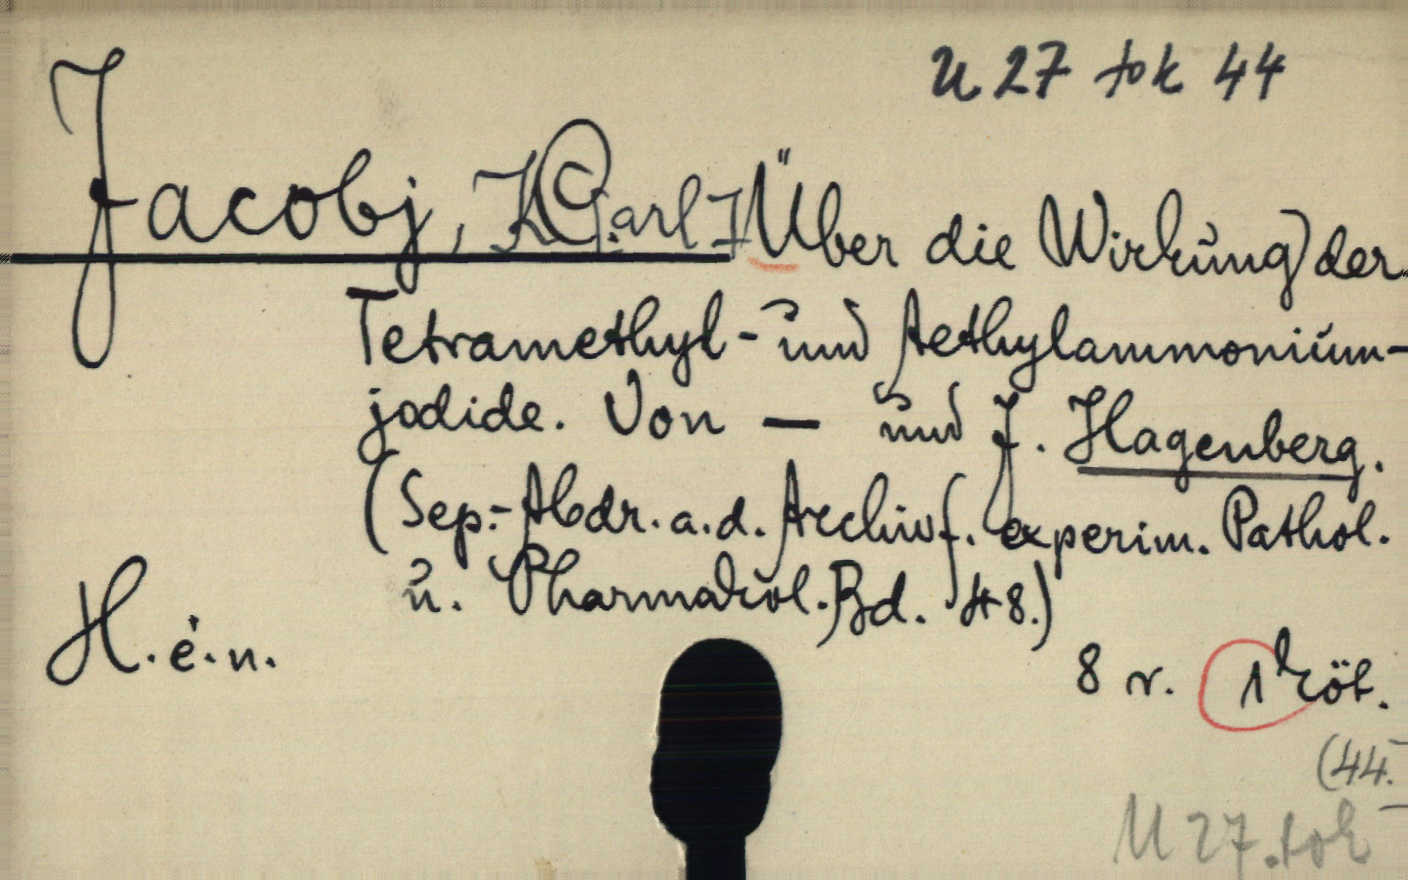 U 27 tok 44
Jacobj, K[C]arl: Über die Wirkung der
Tetramethyl- und Aethylammonium-
jodide. Von — und J. Hagenberg.
(Sep.-Abdr. a. d. Archiv f. experim. Pathol.
u. Pharmakol. Bd. 48.)
H. é. n.
8 r. 1 köt.
(44.
U 27. tok